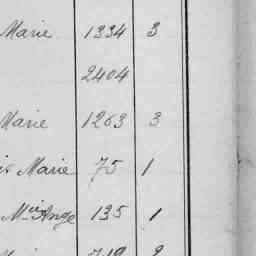 Marie 1334 3
2404
Marie 1263 3
Marie 75 1
Mie Ange 135 1